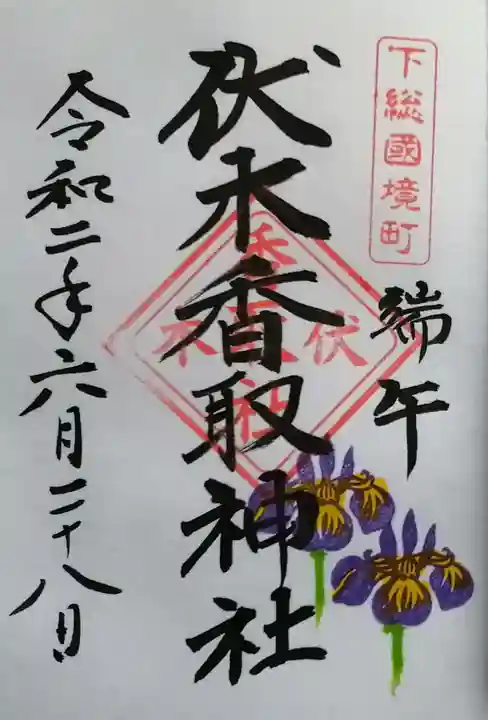 下総國境町
端午
伏木香取神社
伏木
香取神社
令和二年六月二十八日